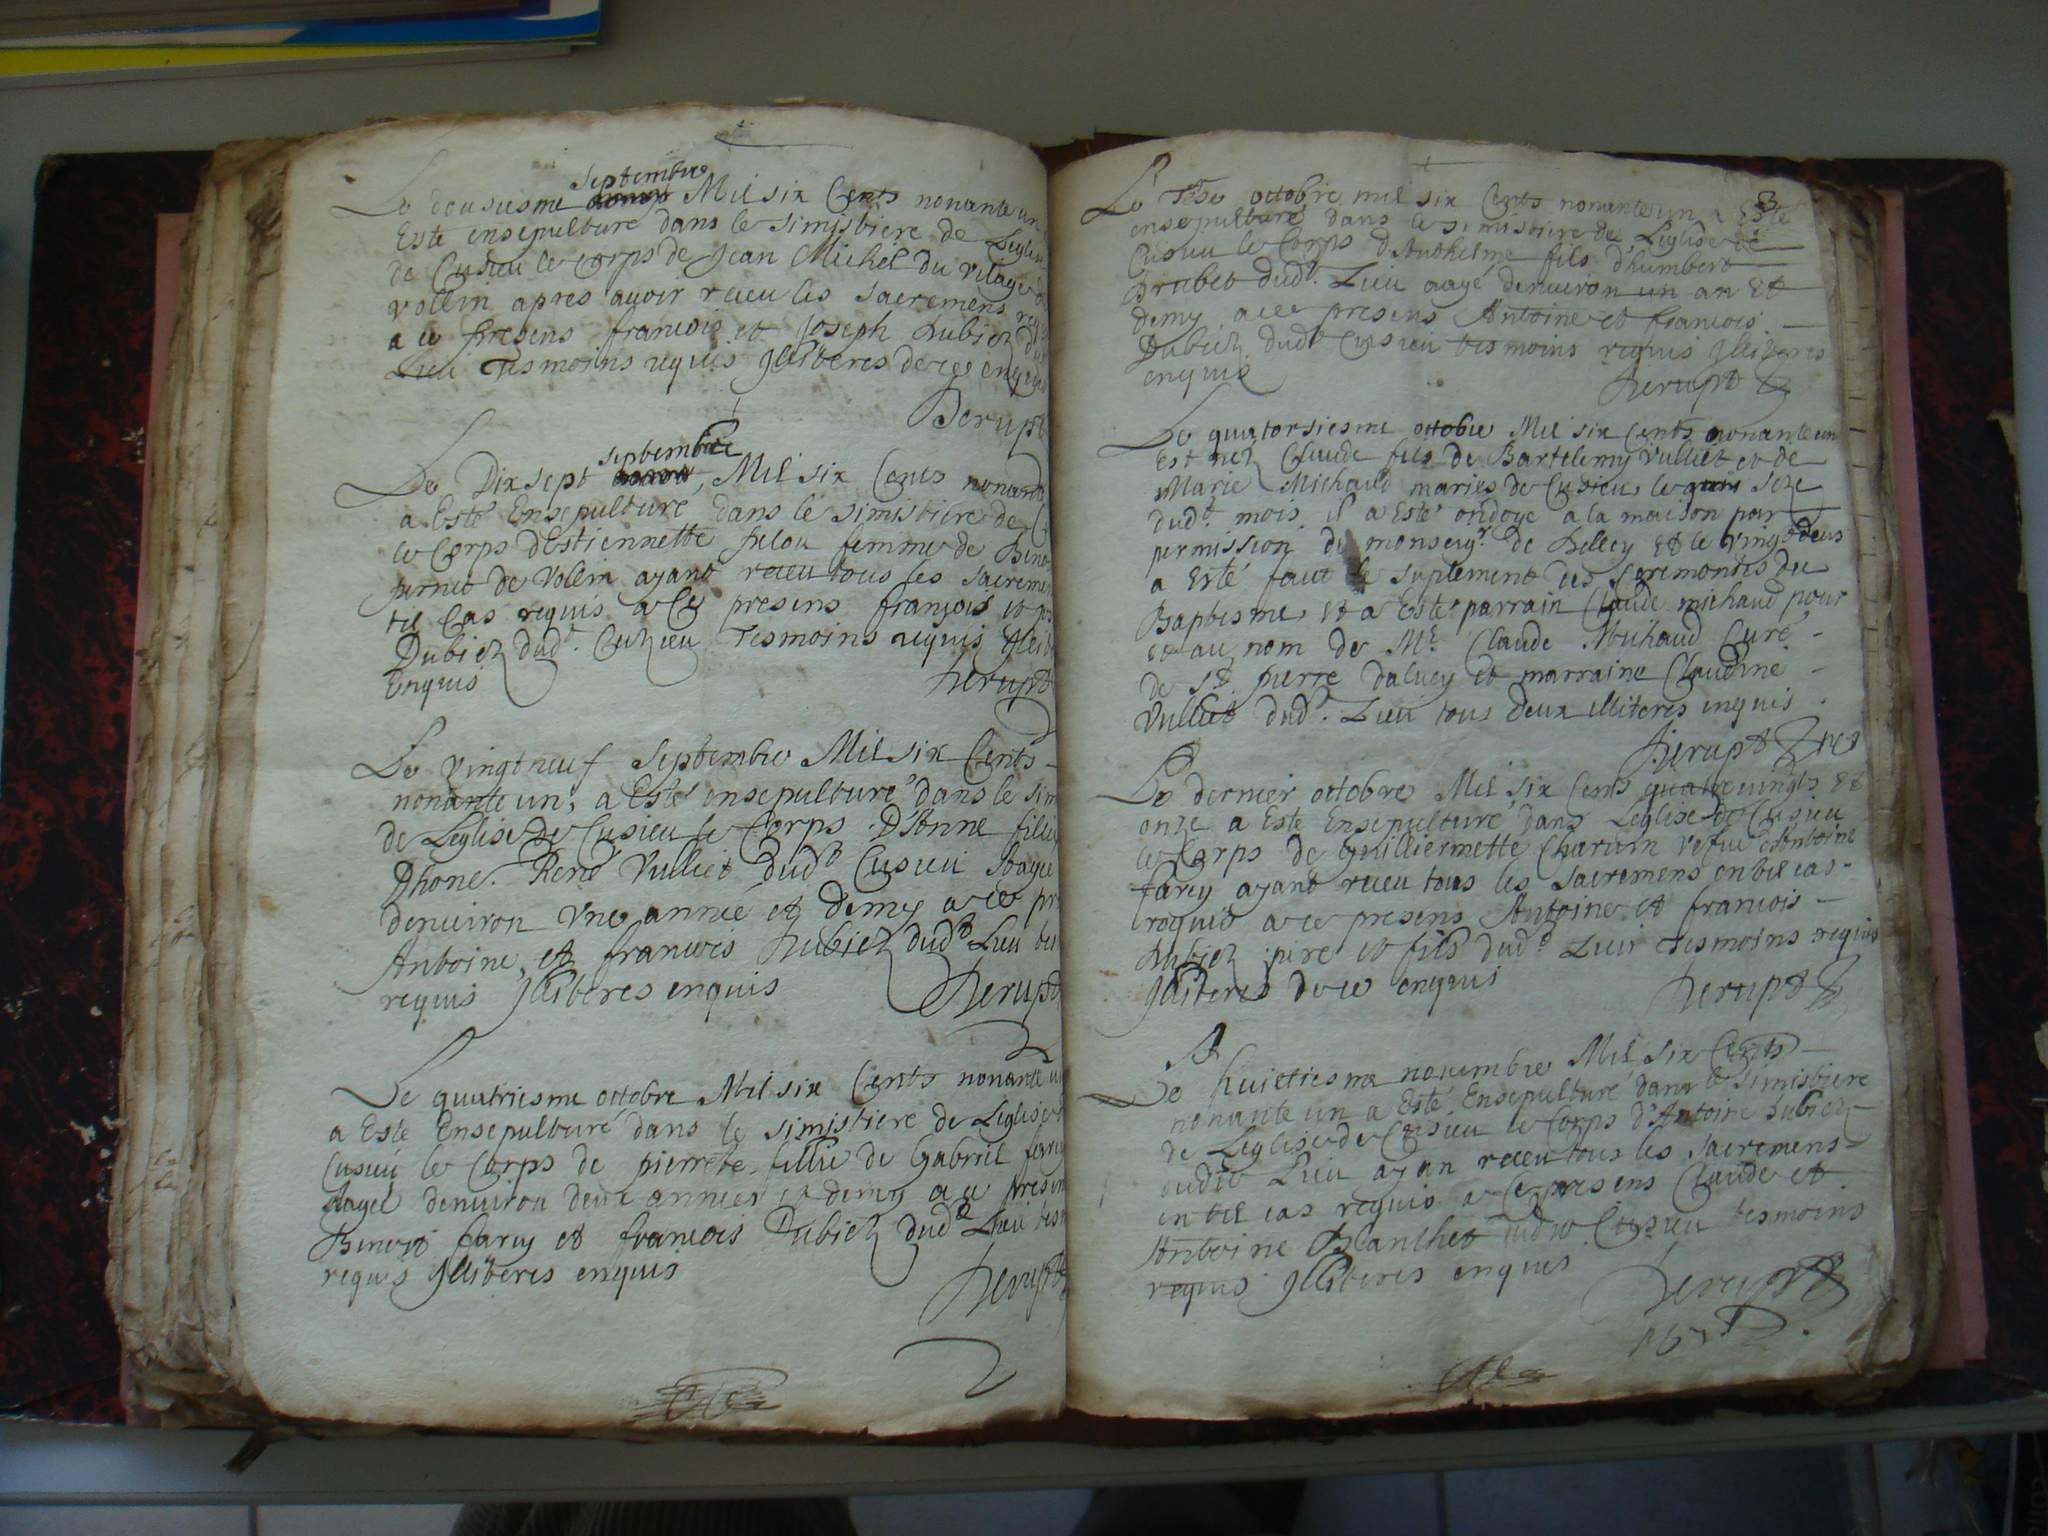 septembre
Le dousiesme Mil six Cents nonante un
Esté ensepulturé dans le simistiere de Leglise
de Cusieu le corps de Jean Michel du vilage de
vollin apres avoir receu les sacremens
a ce presens francois et Joseph Dubiez
Lieu Tesmoins requis Illiteres de ce enquis
Derupt
septembre
Le Dixsept Mil six Cents nonante
a Esté Ensepulturé dans le simistiere de
le Corps dEstiennette femme de
pernet de Volein ayant receu tous les sacremens
tel Cas requis a Ce presens françois et
Dubiez dud. Cuzieu Tesmoins requis
Enquis
Derupt
Le vingtneuf Septembre Mil six Cents
nonante un, a Esté ensepulturé dans le
de Leglise de Cusieu le Corps D'Anne fillie
René Vulliet Dudt Cusieu
denviron Une année et Demy a ce
Antoine et francois Dubiez dudt Lieu
requis Illiteres enquis
Derupt
Le quatriesme octobre Mil six Cents nonante un
a Esté Ensepulturé dans le simistiere de Leglise
Cusieu le Corps de pierrete fillie de Gabriel
Aagee denviron deux annees et demy a ce
Benoit farcy et francois Dubiez dudt Lieu
requis Illiteres enquis
Derupt
3
Le octobre mil six Cents nonante un a Esté
ensepulturé dans le simistiere de Leglise de
Cusieu le Corps d'Anthelme fils d'humbert
Brubet dudt. Lieu aagé denviron un an Et
demy a ce presens Antoine et francois
Dubiez dudt Cusieu tesmoins requis Illiteres
enquis
Derupt
Le quatorsiesme octobre Mil six Cents nonante un
Est nez Claude fils de Bartelemy Vulliet et de
Marie Michaud maries de Cusieu le seze
dudt. mois il a Esté ondoye a la maison par
permission de monseigr de Belley Et le vingtdeus
a Esté fait le suplement des seremonies du
Baptesme et a Esté parrain Claude michaud pour
et au nom de Mr Claude Michaud Curé
de St. pierre dalvey et marraine Claudine
Vulliet dudt. Lieu tous deux illiteres enquis
Derupt
Le dernier octobre Mil six Cents quatrevingts et
onze a Esté Ensepulturé dans Leglise de Cusieu
le Corps de Guilliermette Charvin vefve d'Antoine
farcy ayant receu tous les sacremens en tel cas
requis a ce presens Antoine et francois
Dubiez pere et fils dudt Lieu Tesmoins requis
Illiteres de ce enquis
Derupt
Le huictiesme novembre Mil six Cents
nonante un a Esté Ensepulturé dans le simistiere
de Leglise de Cusieu le Corps d'Antoine Dubiez
dudit Lieu ayan receu tous les sacremens
en tel cas requis a Ce presens Claude et
Antoine Blanchet dudit Cusieu tesmoins
requis Illiteres enquis
Derupt